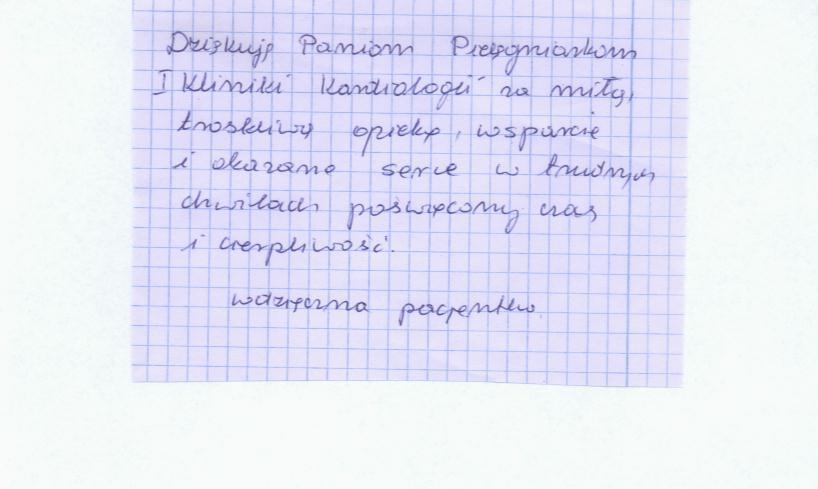 Dziękuję Paniom Pielęgniarkom
I Kliniki Kardiologii za miłą,
troskliwą opiekę, wsparcie
i okazane serce w trudnych
chwilach poświęcony czas
i cierpliwość.
wdzięczna pacjentka